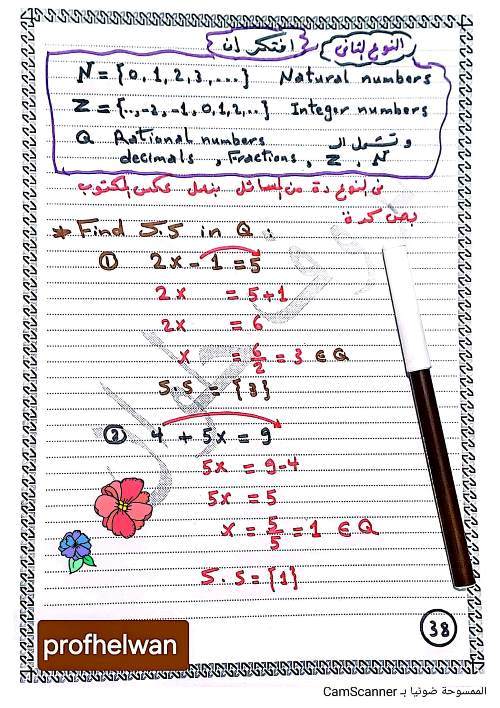 النوع الثاني { افتكر إن }
N = {0, 1, 2, 3, ....} Natural numbers
Z = {.., -2, -1, 0, 1, 2, ..} Integer numbers
Q Rational numbers وتشمل الـ
decimals , Fractions , Z , N
في النوع دة من المسائل بنعمل عكس المكتوب
بص كدة
* Find S.S in Q :
① 2x - 1 = 5
2x = 5+1
2x = 6
x = 6/2 = 3 ∈ Q
S.S = {3}
② 4 + 5x = 9
5x = 9-4
5x = 5
x = 5/5 = 1 ∈ Q
S.S = {1}
38
profhelwan
الممسوحة ضوئيا بـ CamScanner